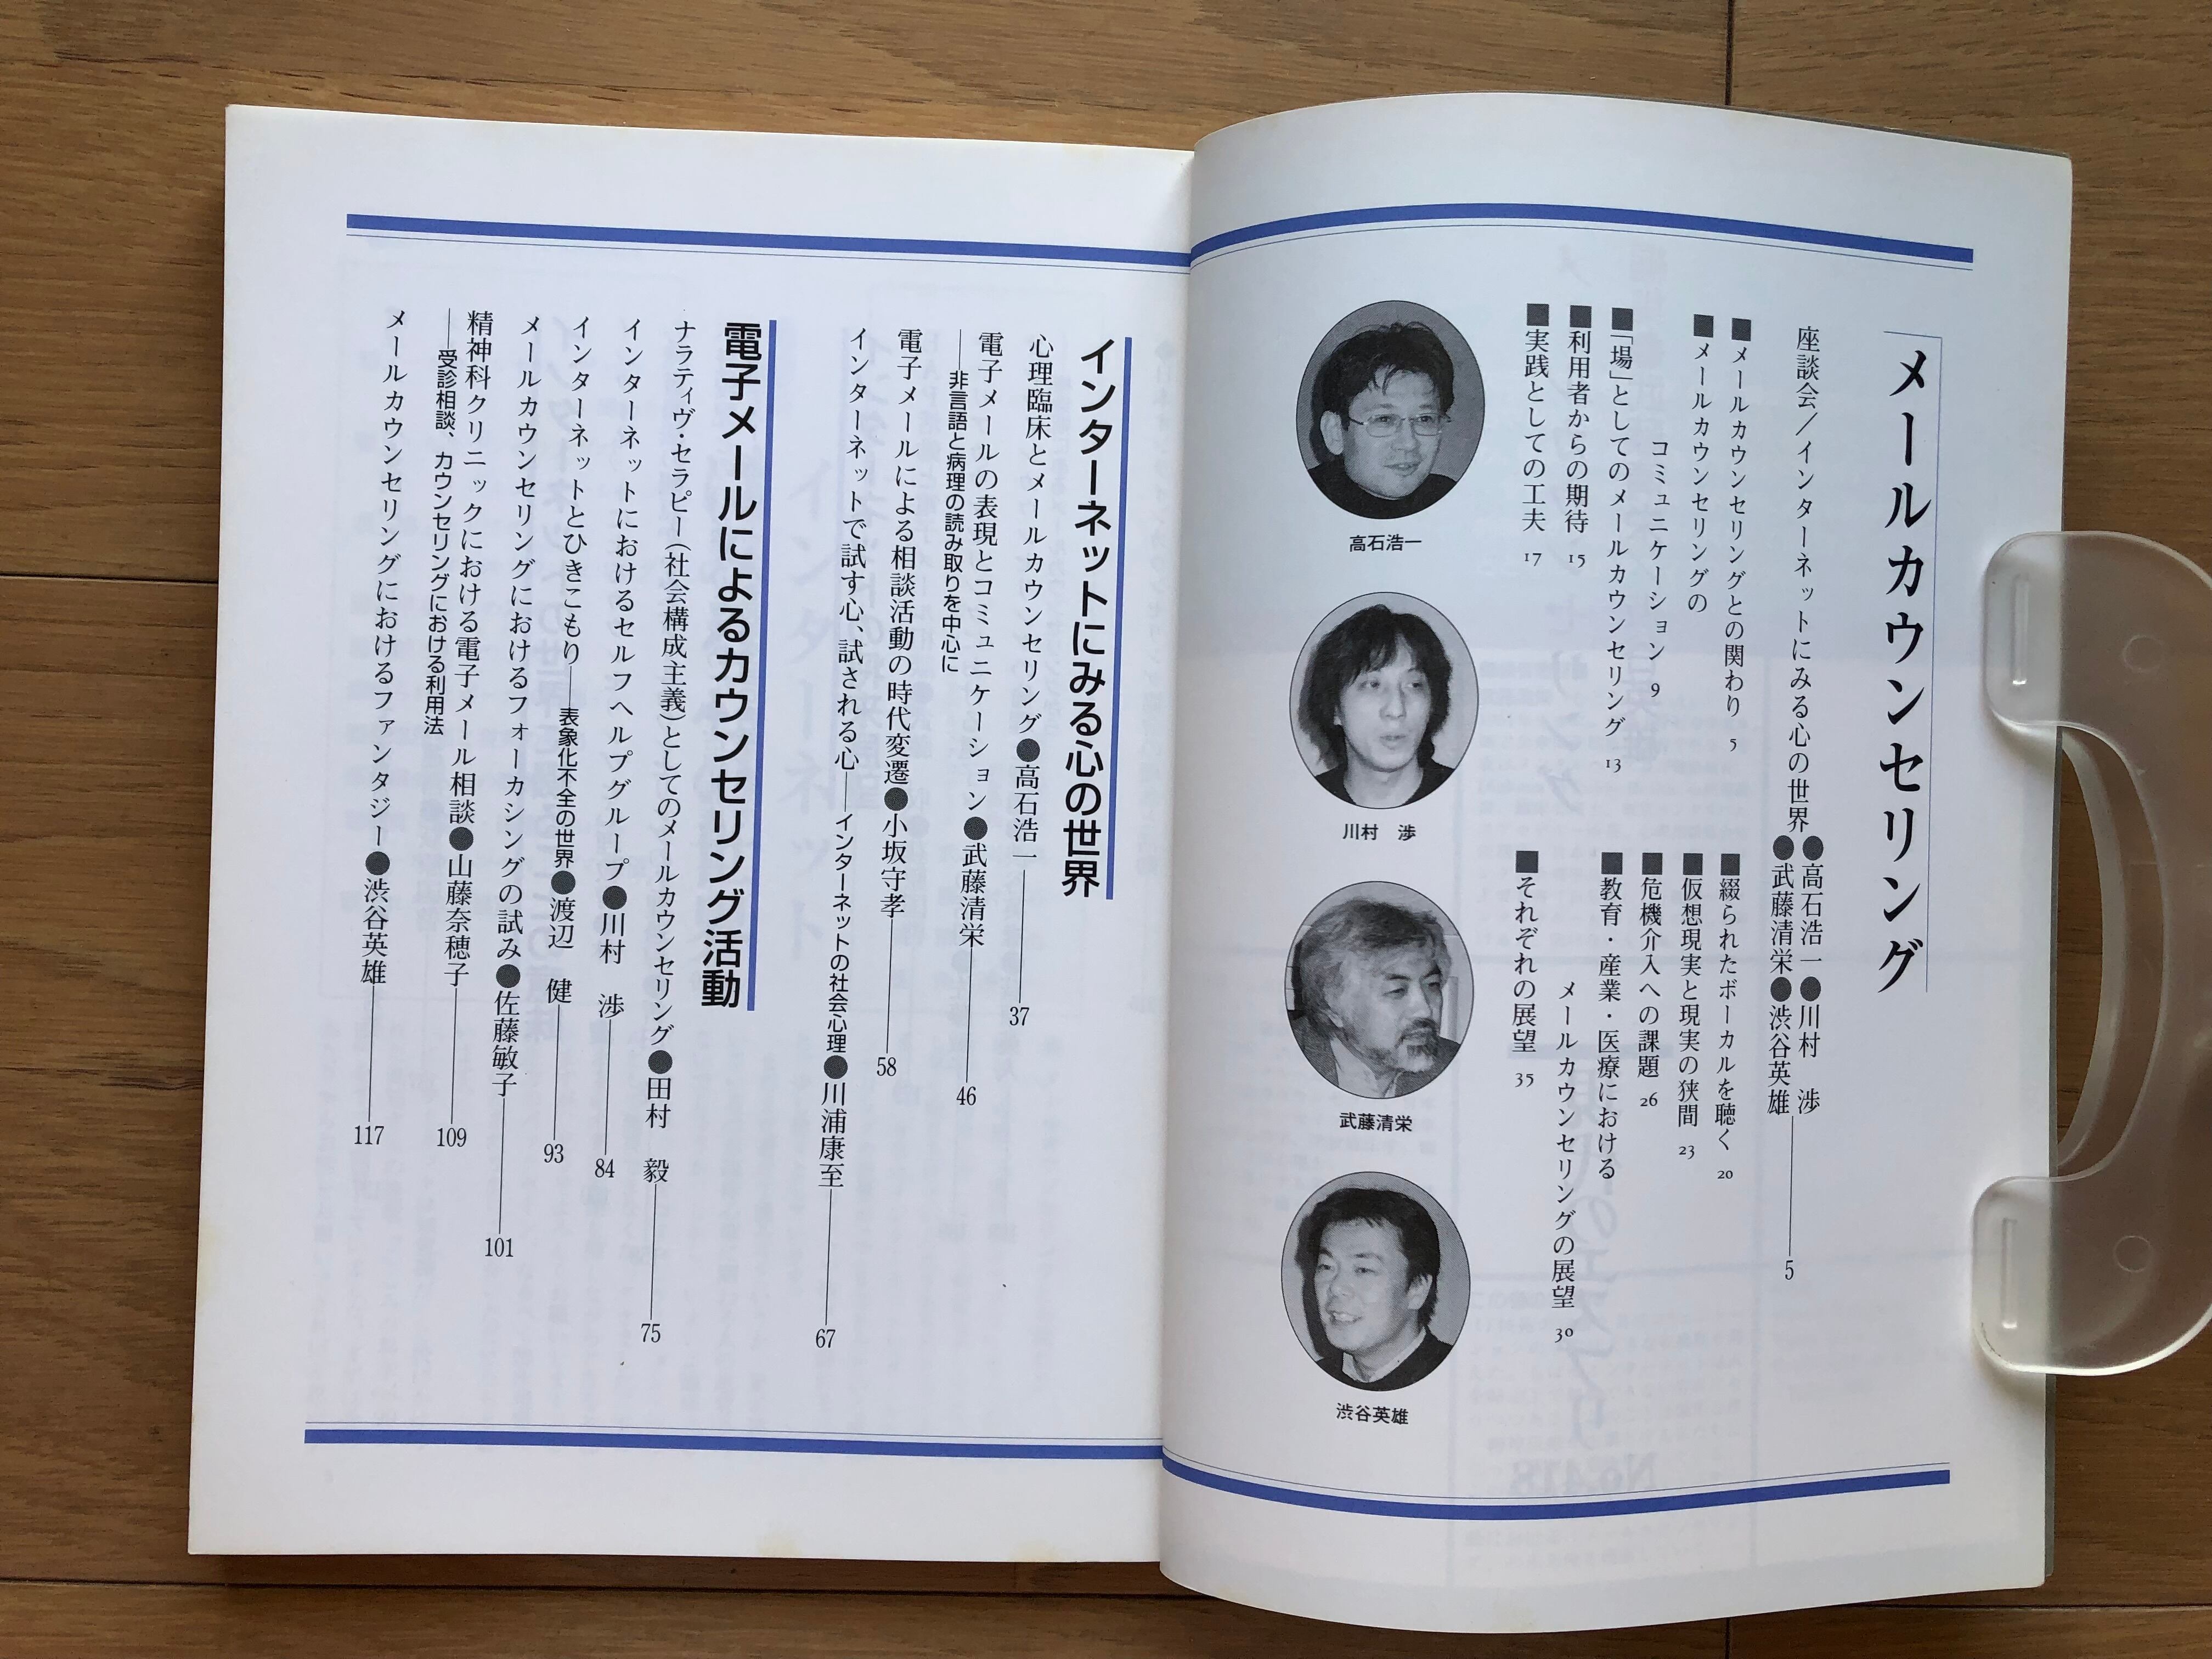 メールカウンセリング
座談会／インターネットにみる心の世界●高石浩一●川村　渉
●武藤清栄●渋谷英雄 5
■メールカウンセリングとの関わり 5
■メールカウンセリングの
コミュニケーション 9
■「場」としてのメールカウンセリング 13
■利用者からの期待 15
■実践としての工夫 17
■綴られたボーカルを聴く 20
■仮想現実と現実の狭間 23
■危機介入への課題 26
■教育・産業・医療における
メールカウンセリングの展望 30
■それぞれの展望 35
高石浩一
川村　渉
武藤清栄
渋谷英雄
インターネットにみる心の世界
心理臨床とメールカウンセリング●高石浩一 37
電子メールの表現とコミュニケーション●武藤清栄 46
―非言語と病理の読み取りを中心に
電子メールによる相談活動の時代変遷●小坂守孝 58
インターネットで試す心、試される心―インターネットの社会心理●川浦康至 67
電子メールによるカウンセリング活動
ナラティヴ・セラピー（社会構成主義）としてのメールカウンセリング●田村　毅 75
インターネットにおけるセルフヘルプグループ●川村　渉 84
インターネットとひきこもり―表象化不全の世界●渡辺　健 93
メールカウンセリングにおけるフォーカシングの試み●佐藤敏子 101
精神科クリニックにおける電子メール相談●山藤奈穂子 109
―受診相談、カウンセリングにおける利用法
メールカウンセリングにおけるファンタジー●渋谷英雄 117